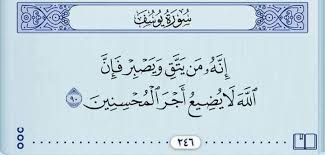 سُورَةُ يُوسُفَ
إِنَّهُۥ مَن يَتَّقِ وَيَصْبِرْ فَإِنَّ
ٱللَّهَ لَا يُضِيعُ أَجْرَ ٱلْمُحْسِنِينَ ٩٠
٢٤٦